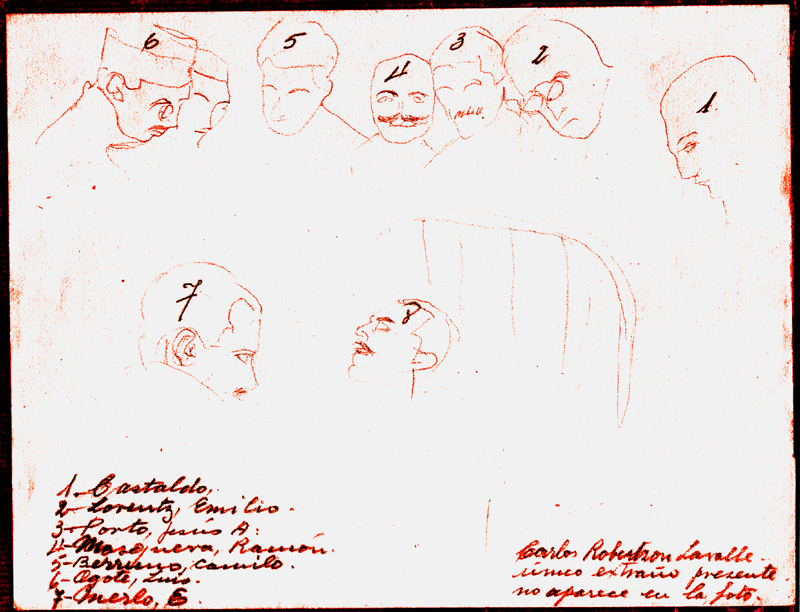 6
5
4
3
2
1.
7
8
1- Castaldo,
2- Lorentz, Emilio.
3- Porto, Jesús A.
4- Mosquera, Ramón.
5- Camilo.
6- Agote, Luis.
7- Merlo, E
Carlos Robertson Lavalle.
único extraño presente.
no aparece en la foto.